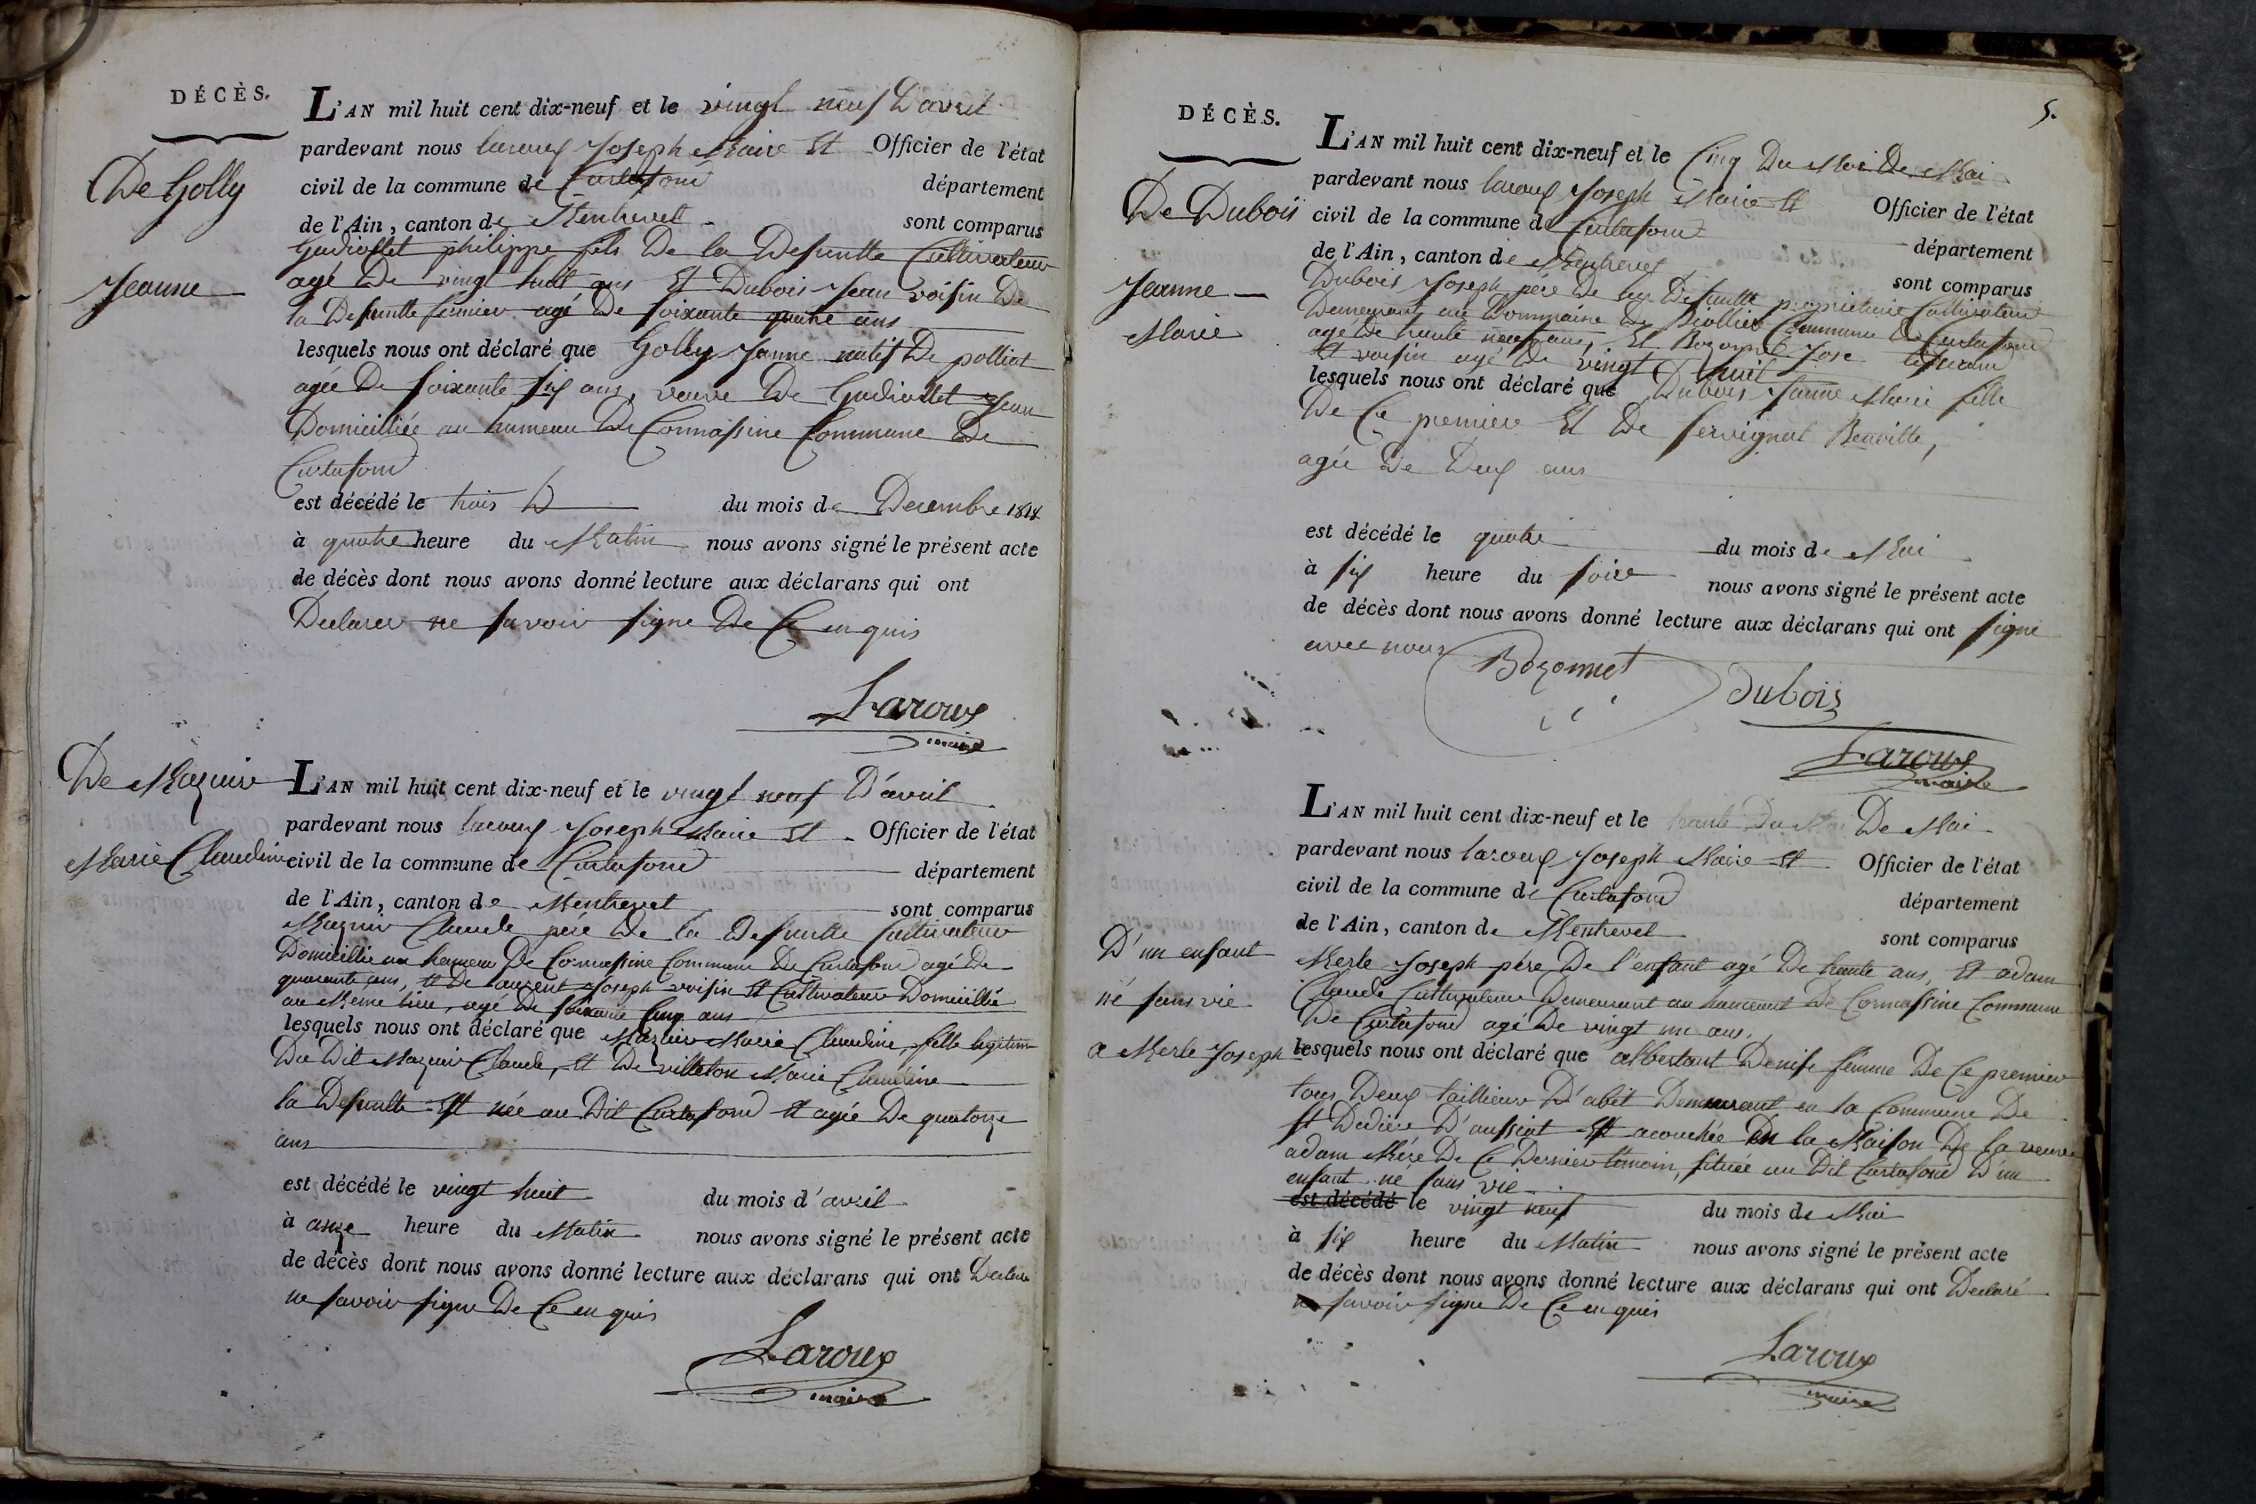 DÉCÈS.
De Golly
Jeanne
L'AN mil huit cent dix-neuf et le vingt neuf D'avril
pardevant nous laroux Joseph Maire Et Officier de l'état
civil de la commune de Curtafond département
de l'Ain, canton de Montrevel sont comparus
Gudiollet philippe fils De la Defuntte Cultivateur
agé De vingt huit ans Et Dubois Jean voisin De
la Defuntte fermier agé De soixante quatre ans
lesquels nous ont déclaré que Golly Janne natif De polliat
agée De soixante six ans, veuve De Gudiollet Jean
Domicilliée au hameau De Connassine Commune De
Curtafond
est décédé le trois D du mois de Decembre 1818
à quatre heure du Matin nous avons signé le présent acte
de décès dont nous avons donné lecture aux déclarans qui ont
Declarer ne savoir signe De Ce enquis
Laroux
maire
De Mazuir
Marie Claudine
L'AN mil huit cent dix-neuf et le vingt neuf D'avril
pardevant nous laroux Joseph Maire Et Officier de l'état
civil de la commune de Curtafond département
de l'Ain, canton de Montrevel sont comparus
Mazuir Claude père De la Defuntte Cultivateur
Domicillié au hameau De Cormassine Commune De Curtafond agé De
quarante ans, et De laurent Joseph voisin Et Cultivateur Domicillié
au Meme lieu, agé De soixante Cinq ans
lesquels nous ont déclaré que Mazuir Marie Claudine, fille legitime
Du Dit Mazuir Claude, Et De villeton Marie Claudine
la Defuntte Est née au Dit Curtafond Et agée De quatorze
ans
est décédé le vingt huit du mois d'avril
à onze heure du Matin nous avons signé le présent acte
de décès dont nous avons donné lecture aux déclarans qui ont Declare
ne savoir signe De Ce enquis
Laroux
maire
5.
DÉCÈS.
De Dubois
Jeanne
Marie
L'AN mil huit cent dix-neuf et le Cinq Du Mois De Mai
pardevant nous laroux Joseph Maire Et Officier de l'état
civil de la commune de Curtafond département
de l'Ain, canton de Montrevel sont comparus
Dubois Joseph père De la Defuntte propriétaire Cultivateur
Demeurant au Dommaine De Biollier Commune De Curtafond
agé De trente neuf ans, Et Bozonnet Jose
Et voisin agé De vingt huit
lesquels nous ont déclaré que Dubois Janne Marie fille
De Ce premier Et De servignat Benoitte,
agée De Deux ans
est décédé le quatre du mois de Mai
à six heure du soire nous avons signé le présent acte
de décès dont nous avons donné lecture aux déclarans qui ont signé
avec nous
Bozonnet
Dubois
Laroux
maire
D'un enfant
né sans vie
a Merle Joseph
L'AN mil huit cent dix-neuf et le trente Du Moi De Mai
pardevant nous laroux Joseph Maire Et Officier de l'état
civil de la commune de Curtafond département
de l'Ain, canton de Montrevel sont comparus
Merle Joseph père De l'enfant agé De trente ans, Et adam
Claude Cultivateur Demeurant au hameaut De Cormassine Commune
De Curtafond agé De vingt un ans,
lesquels nous ont déclaré que Denise femme De Ce premier
tous Deux taillieur D'abit Demeurant en la Commune De
st Didier D'aussiat Est acouchée En la Maison De la veuve
adam Mère De Ce Dernier temoin, située au Dit Curtafond D'un
enfant né sans vie
est décédé le vingt neuf du mois de Mai
à six heure du Matin nous avons signé le présent acte
de décès dont nous avons donné lecture aux déclarans qui ont Declaré
ne savoir signe De Ce enquis
Laroux
maire